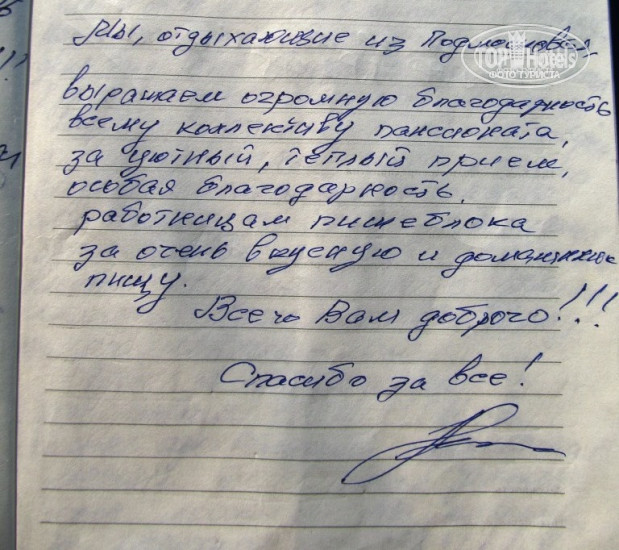 Мы, отдыхающие из Подмосковья,
TOP Hotels
ФОТО ТУРИСТА
выражаем огромную благодарность
всему коллективу пансионата,
за уютный, теплый прием,
особая благодарность,
работницам пищеблока
за очень вкусную и домашнюю
пищу.
Всего Вам доброго!!!
Спасибо за все!